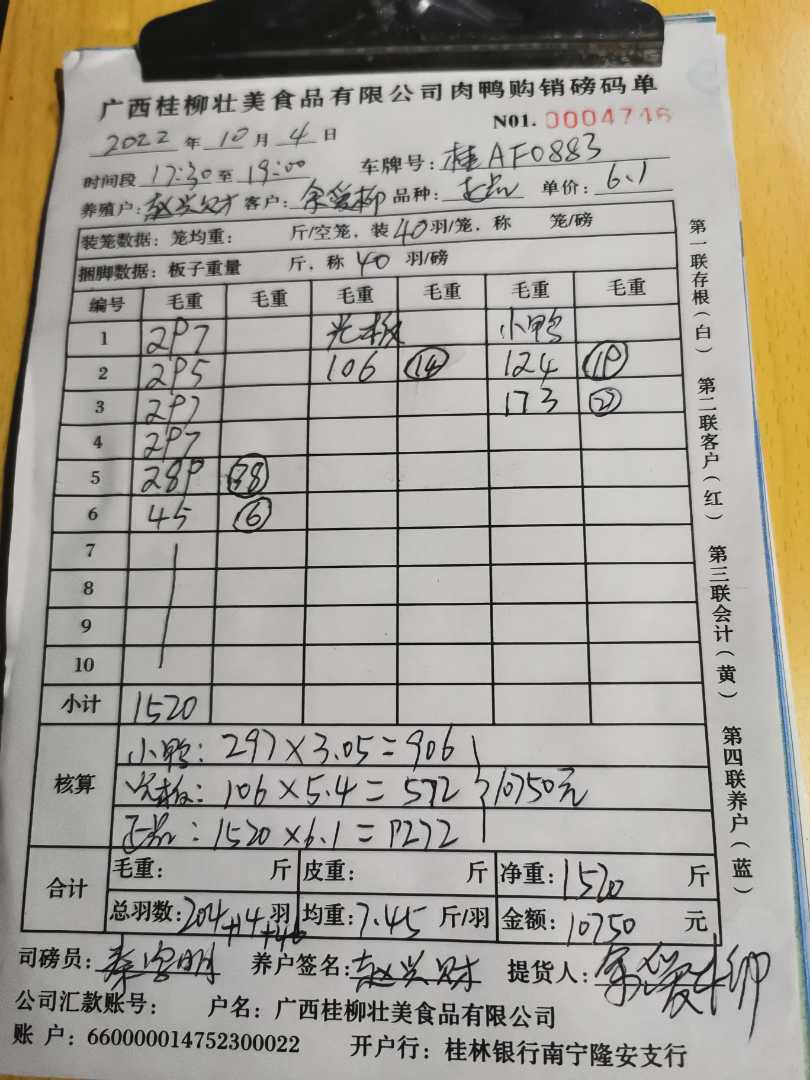 广西桂柳壮美食品有限公司肉鸭购销磅码单
N01. 0004746
2022 年 10 月 4 日
时间段 17:30 至 19:00 车牌号: 桂AF0883
养殖户: 赵兴财 客户: 余爱柳 品种: 正品 单价: 6.1
装笼数据: 笼均重: 斤/空笼, 装 40 羽/笼, 称 笼/磅
捆脚数据: 板子重量 斤, 称 40 羽/磅
编号 毛重 毛重 毛重 毛重 毛重 毛重
1 297 光板 小鸭
2 295 106 14 124 19
3 297 173 27
4 297
5 289 38
6 45 6
7
8
9
10
小计 1520
核算
小鸭: 297×3.05=906
光板: 106×5.4=572 10750元
正品: 1520×6.1=9272
合计
毛重: 斤 皮重: 斤 净重: 1520 斤
总羽数: 204+14+46 羽 均重: 7.45 斤/羽 金额: 10750 元
司磅员: 养户签名: 赵兴财 提货人: 余爱柳
公司汇款账号: 户名: 广西桂柳壮美食品有限公司
账 户: 660000014752300022 开户行: 桂林银行南宁隆安支行
第一联存根(白) 第二联客户(红) 第三联会计(黄) 第四联养户(蓝)